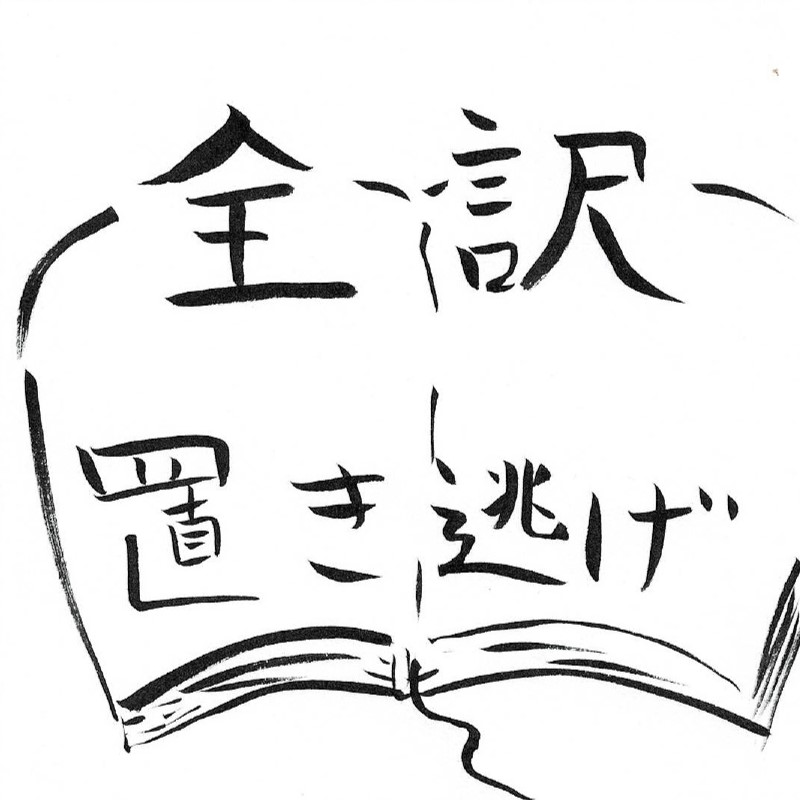 全訳
置き逃げ